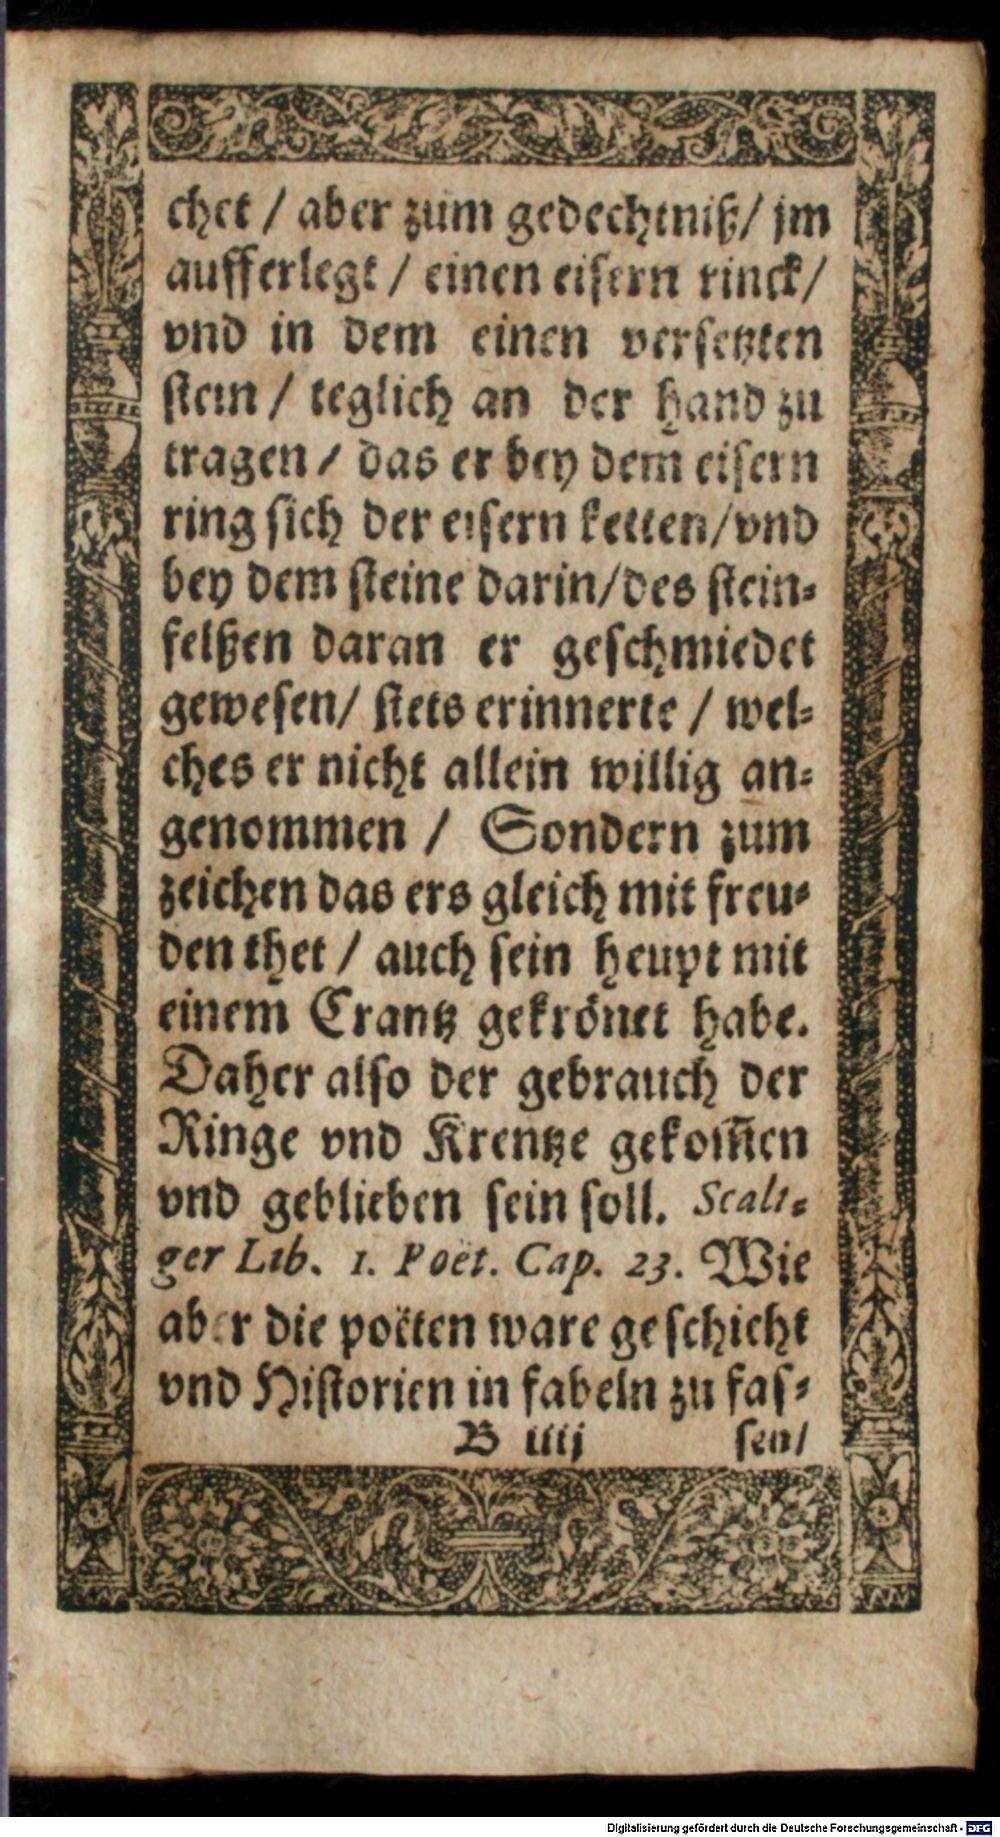 chet / aber zum gedechtniß/ jm
aufferlegt / einen eisern rinck/
vnd in dem einen versetzten
stein / teglich an der hand zu
tragen / das er bey dem eisern
ring sich der eisern ketten/vnd
bey dem steine darin/des stein-
felßen daran er geschmiedet
gewesen/ stets erinnerte / wel-
ches er nicht allein willig an-
genommen / Sondern zum
zeichen das ers gleich mit freu-
den thet / auch sein heupt mit
einem Crantz gekrönet habe.
Daher also der gebrauch der
Ringe vnd Krentze gekom̃en
vnd geblieben sein soll. Scali-
ger Lib. 1. Poët. Cap. 23. Wie
aber die poëten ware geschicht
vnd Historien in fabeln zu fas-
B iiij sen/
Digitalisierung gefördert durch die Deutsche Forschungsgemeinschaft - DFG